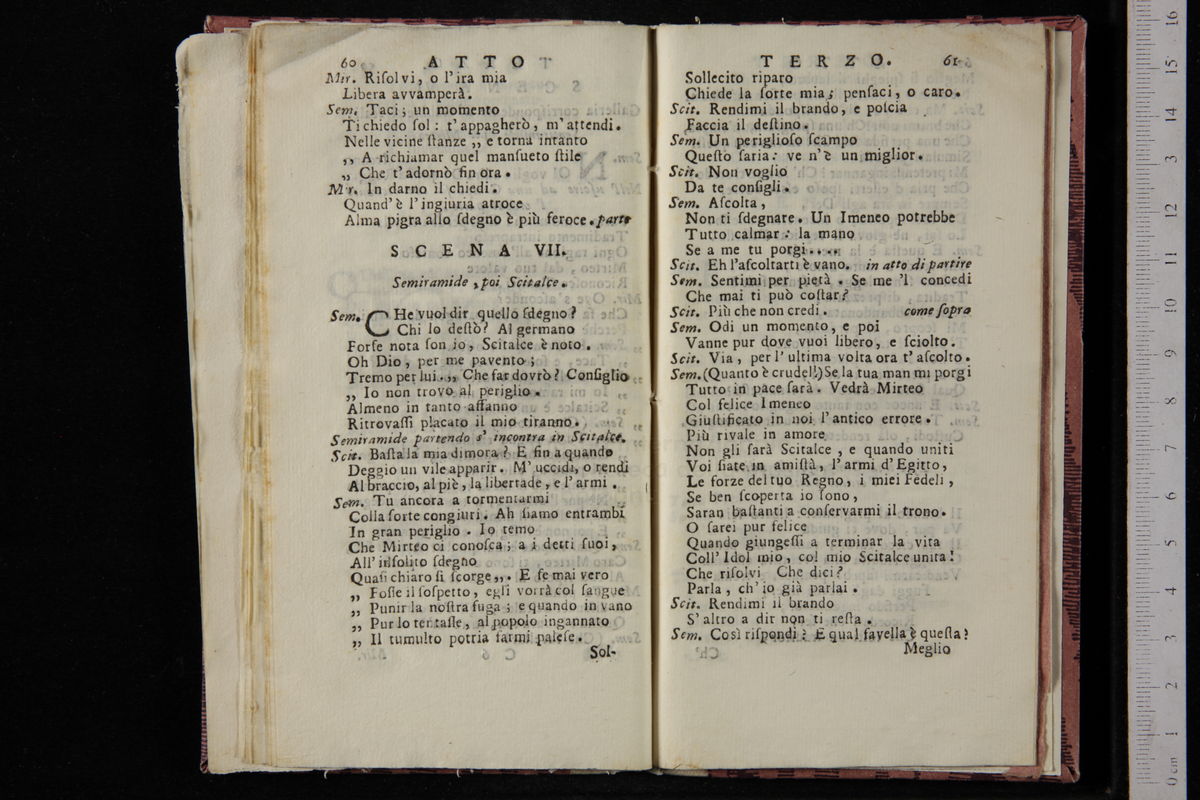 60 ATTO
Mir. Riſolvi, o l'ira mia
Libera avvamperà.
Sem. Taci; un momento
Ti chiedo ſol: t'appagherò, m'attendi.
Nelle vicine ſtanze ,, e torna intanto
,, A richiamar quel manſueto ſtile
,, Che t'adornò fin ora.
Mir. In darno il chiedi.
Quand'è l'ingiuria atroce
Alma pigra allo ſdegno è più feroce. parte
SCENA VII.
Semiramide, poi Scitalce.
Sem. CHe vuol dir quello ſdegno?
Chi lo deſtò? Al germano
Forſe nota ſon io, Scitalce è noto.
Oh Dio, per me pavento;
Tremo per lui. ,, Che far dovrò? Conſiglio
,, Io non trovo al periglio.
Almeno in tanto affanno
Ritrovaſſi placato il mio tiranno.
Semiramide partendo s'incontra in Scitalce.
Scit. Baſta la mia dimora? E fin a quando
Deggio un vile apparir. M'uccidi, o rendi
Al braccio, al piè, la libertade, e l'armi.
Sem. Tu ancora a tormentarmi
Colla ſorte congiuri. Ah ſiamo entrambi
In gran periglio. Io temo
Che Mirteo ci conoſca; a i detti ſuoi,
All'inſolito ſdegno
Quaſi chiaro ſi ſcorge ,,. E ſe mai vero
,, Foſſe il ſoſpetto, egli vorrà col ſangue
,, Punir la noſtra fuga; e quando in vano
,, Pur lo tentaſſe, al popolo ingannato
,, Il tumulto potria farmi paleſe.
C 6 Sol-
TERZO. 61
Sollecito riparo
Chiede la ſorte mia; penſaci, o caro.
Scit. Rendimi il brando, e poſcia
Faccia il deſtino.
Sem. Un periglioſo ſcampo
Queſto ſaria: ve n'è un miglior.
Scit. Non voglio
Da te conſigli.
Sem. Aſcolta,
Non ti ſdegnare. Un Imeneo potrebbe
Tutto calmar: la mano
Se a me tu porgi....
Scit. Eh l'aſcoltarti è vano. in atto di partire
Sem. Sentimi per pietà. Se me 'l concedi
Che mai ti può coſtar?
Scit. Più che non credi. come ſopra
Sem. Odi un momento, e poi
Vanne pur dove vuoi libero, e ſciolto.
Scit. Via, per l'ultima volta ora t'aſcolto.
Sem. (Quanto è crudel!) Se la tua man mi porgi
Tutto in pace ſarà. Vedrà Mirteo
Col felice Imeneo
Giuſtificato in noi l'antico errore.
Più rivale in amore
Non gli ſarà Scitalce, e quando uniti
Voi ſiate in amiſtà, l'armi d'Egitto,
Le forze del tuo Regno, i miei Fedeli,
Se ben ſcoperta io ſono,
Saran baſtanti a conſervarmi il trono.
O ſarei pur felice
Quando giungeſſi a terminar la vita
Coll'Idol mio, col mio Scitalce unita!
Che riſolvi Che dici?
Parla, ch'io già parlai.
Scit. Rendimi il brando
S'altro a dir non ti reſta.
Sem. Così riſpondi? E qual favella è queſta?
Meglio
0 cm 1 2 3 4 5 6 7 8 9 10 11 12 13 14 15 16